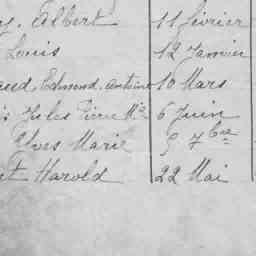 Albert 11 février
Louis 12 Janvier
Edmond, Antoine 10 Mars
Jules Pierre Mie 6 Juin
Yves Marie 5 7bre
Harold 22 Mai